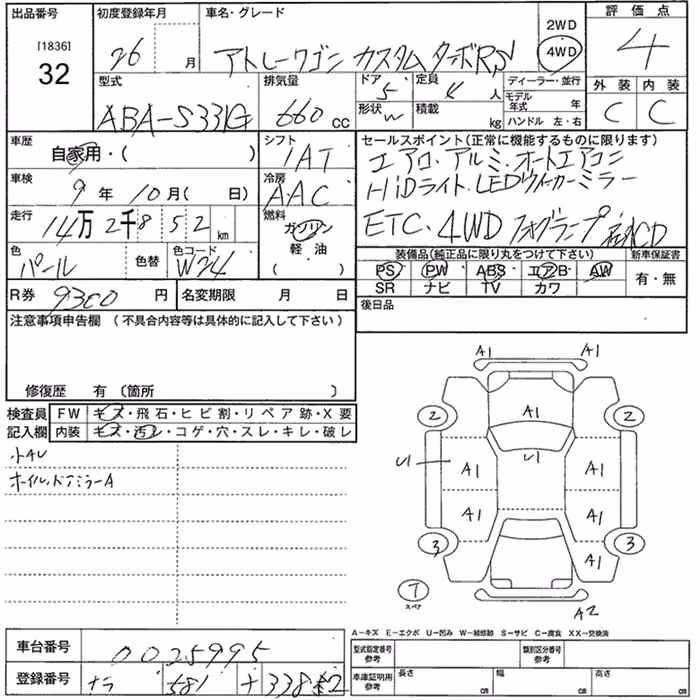 出品番号
[1836]
32
初度登録年月
26 月
車名・グレード
アトレーワゴン カスタムターボRS
2WD
4WD
評価点
4
型式
ABA-S331G
排気量
660 cc
ドア
5
形状
定員
4 人
積載
kg
ディーラー・並行
モデル年式 年
ハンドル 左・右
外装 内装
C C
車歴
自家用・( )
シフト
IAT
車検
9年 10月( 日)
冷房
AAC
走行
14万 2千 8 5 2 km
燃料
ガソリン
軽・油
( )
色
パール
色替
色コード
W24
セールスポイント(正常に機能するものに限ります)
エアロ・アルミ・オートエアコン
HiDライト・LEDウイカーミラー
ETC・4WD フォグランプ CD
装備品(純正品に限り丸をつけて下さい)
新車保証書
PS PW ABS エアB AW
SR ナビ TV カワ
有・無
R券 9300 円
名変期限 月 日
後日品
注意事項申告欄(不具合内容等は具体的に記入して下さい)
修復歴 有 〔箇所 〕
検査員
記入欄
FW キズ・飛石・ヒビ割・リペア跡・X要
内装 キズ・汚レ・コゲ・穴・スレ・キレ・破レ
小AU
オイル・ドアミラーA
A1 A1
2 A1 2
U1 A1 U1 A1
A1 A1
3 A1 3
T
スペア
A2
A－キズ E－エクボ U－凹み W－補修跡 S－サビ C－腐食 XX－交換済
車台番号
0025995
登録番号
ナラ 581 ナ 338
型式指定番号
参考
類別区分番号
参考
車庫証明用
参考
長さ cm
幅 cm
高さ cm